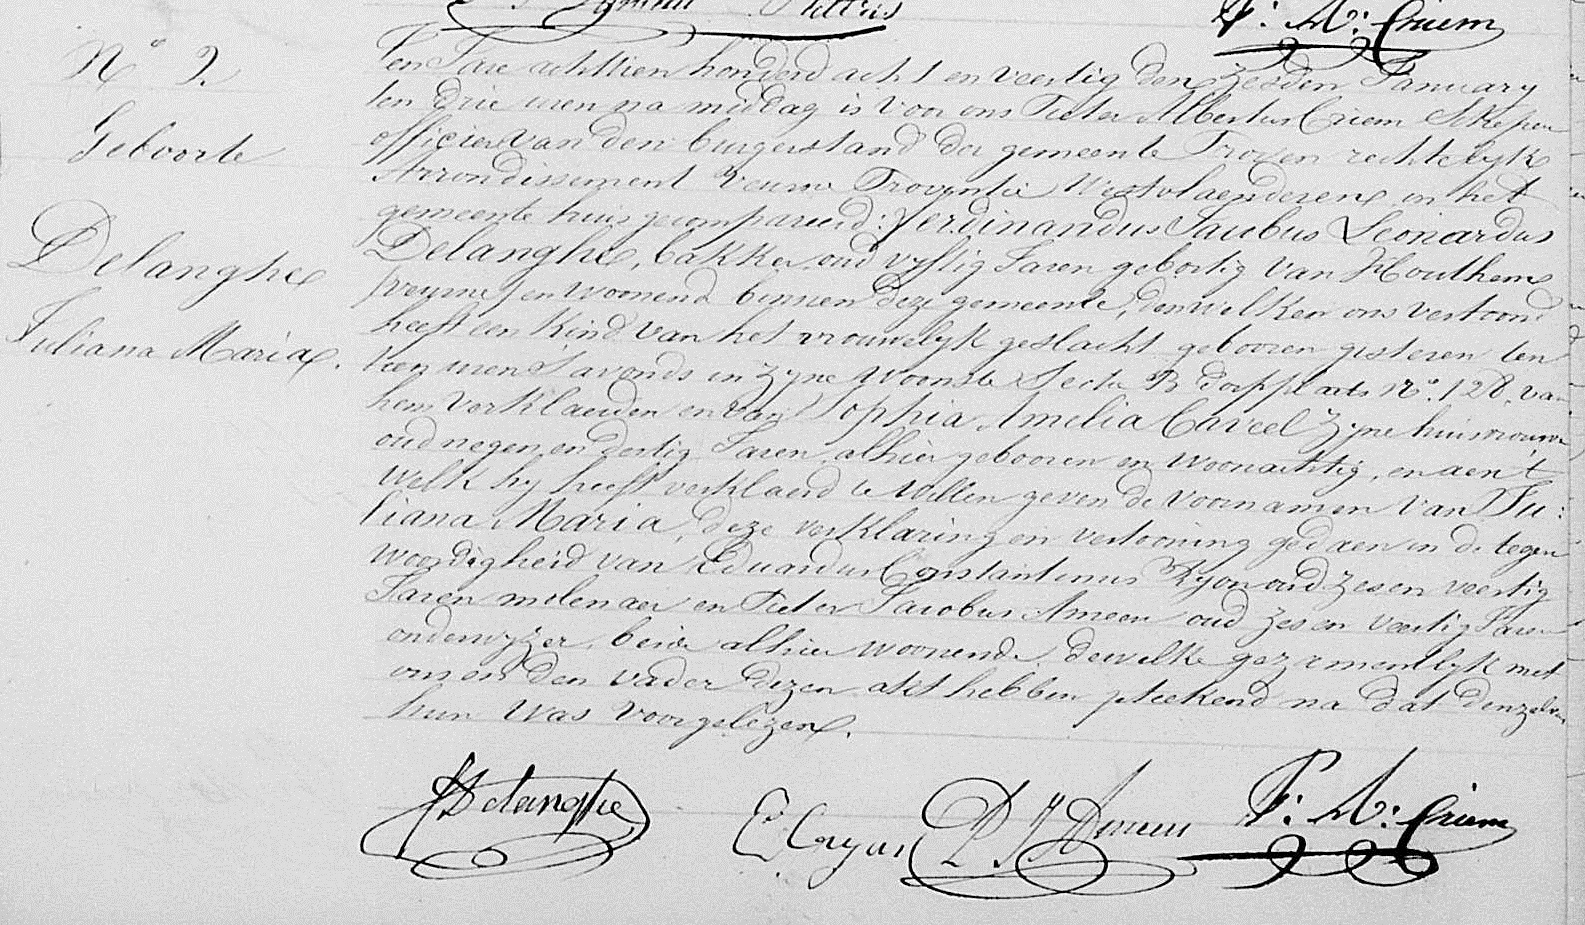 P: A: Criem
N° 2.
Geboorte
Delanghe
Juliana Maria.
Ten Jare achttien honderd acht en veertig den zesden January
ten drie uren na middag is voor ons Pieter Albertus Criem Schepen
officier van den burgerstand der gemeente Proven rechtelyk
Arrondissement Veurne Provintie Westvlaenderen in het
gemeente huis gecompareerd: Ferdinandus Jacobus Leonardus
Delanghe, bakker oud vyftig Jaren geboortig van Houthem
(veurne) en woonend binnen deze gemeente, denwelken ons vertoond
heeft een kind van het vrouwelyk geslacht gebooren gisteren ten
tien uren s'avonds in zyne woonste Sectie B dorpplaets N°. 128. van
hem verklaerder en van Sophia Amelia Caveel zyne huisvrouw
oud negen en dertig Jaren alhier gebooren en woonachtig, en aen 't
welk hy heeft verklaerd te willen geven de voornamen van Ju:
liana Maria, deze verklaring en vertooning gedaen in de tegen
woordigheid van Eduardus Constantinus Ryon oud zes en veertig
Jaren molenaer en Pieter Jacobus Ameeu oud zes en veertig Jaren
onderwyzer, beide alhier woonende dewelke gezamentlyk met
ons en den vader dezen akt hebben geteekend na dat denzelven
hun was voorgelezen.
Delanghe
P J Ameeu
P: A: Criem